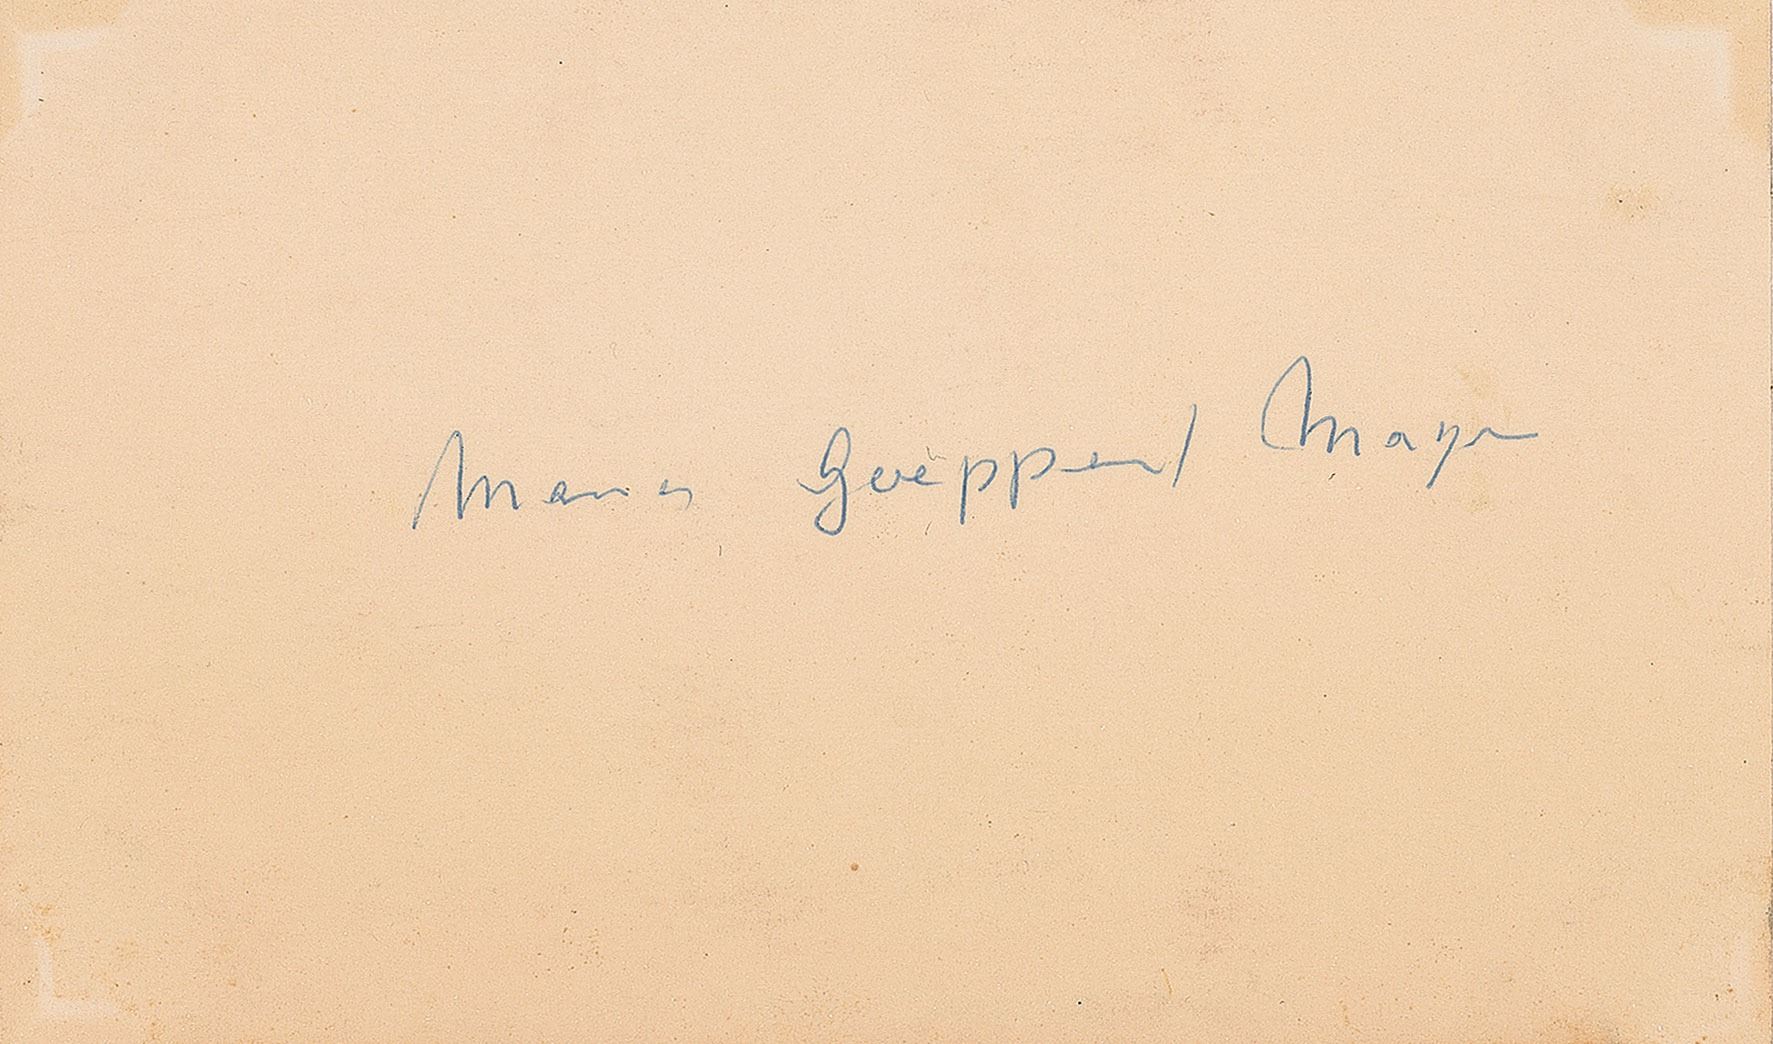 Maria Goeppert Mayer